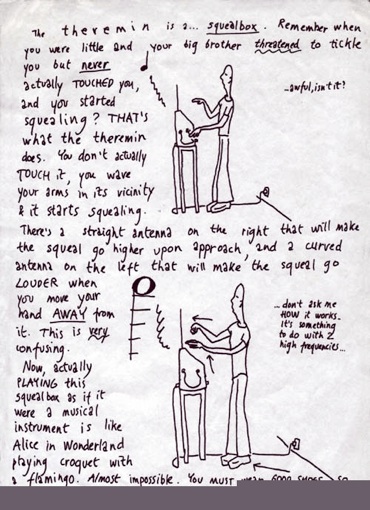 The theremin is a... squealbox. Remember when
you were little and your big brother threatened to tickle
you but never
actually TOUCHED you,
and you started
squealing? THAT'S
what the theremin
does. You don't actually
TOUCH it, you wave
your arms in its vicinity
& it starts squealing.
...awful, isn't it?
There's a straight antenna on the right that will make
the squeal go higher upon approach, and a curved
antenna on the left that will make the squeal go
LOUDER when
you move your
hand AWAY from
it. This is very
confusing.
Now, actually
PLAYING this
squealbox as if it
were a musical
instrument is like
Alice in Wonderland
playing croquet with
a flamingo. Almost impossible. You must wear GOOD SHOES, so
...don't ask me
HOW it works.
It's something
to do with 2
high frequencies...